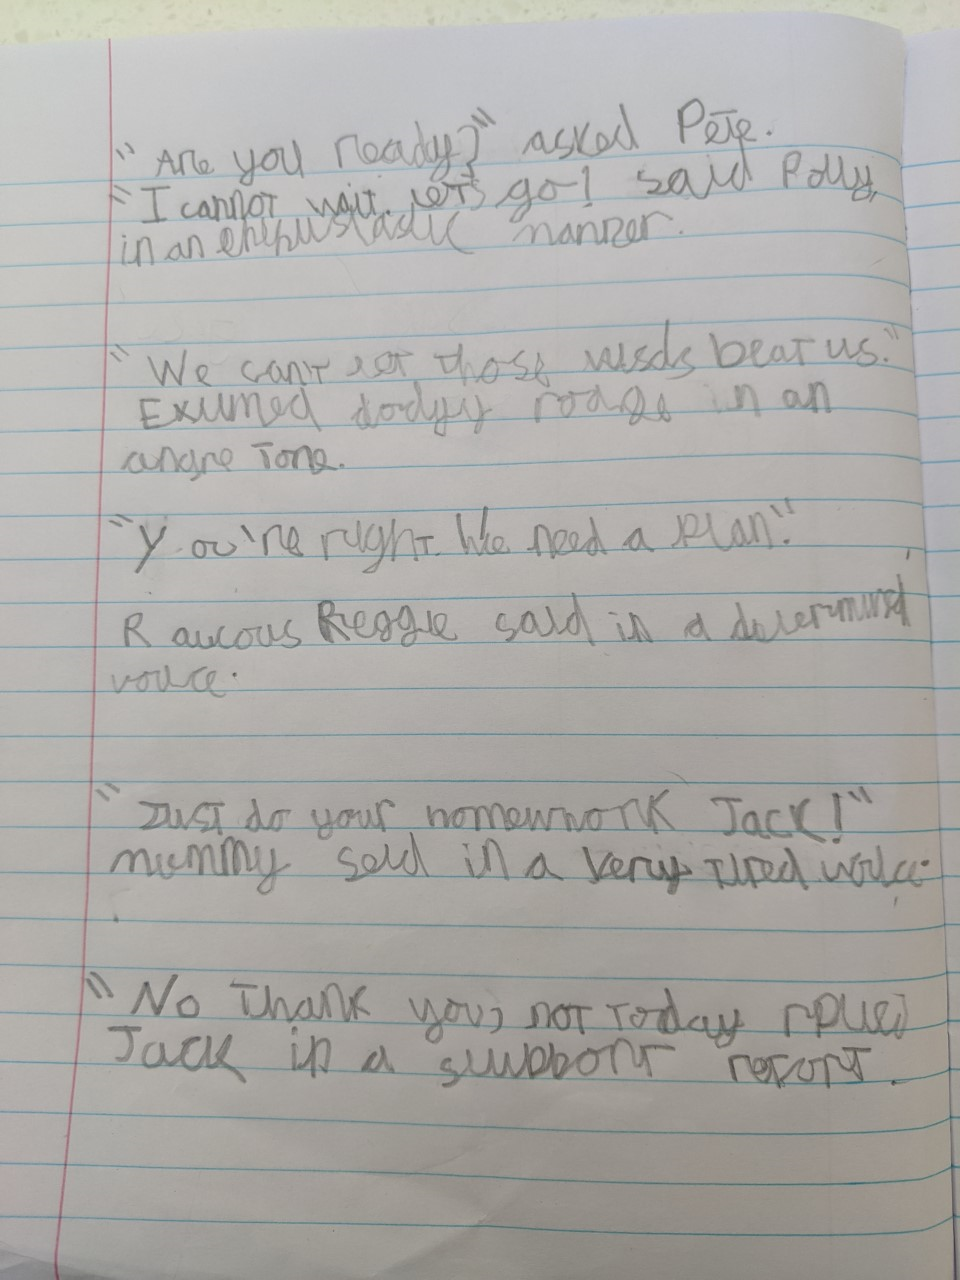 "Are you ready?" asked Pete.
"I cannot wait. let's go! said Polly,
in an enthusiastic manner.
"We can't let those beat us."
Exumed dodgy rodge in an
angre tone.
"You're right. We need a plan."
Raucous Reggie said in a determined
voice.
"Just do your homework Jack!"
mummy said in a very tired voice.
"No thank you, not today
Jack in a retort.